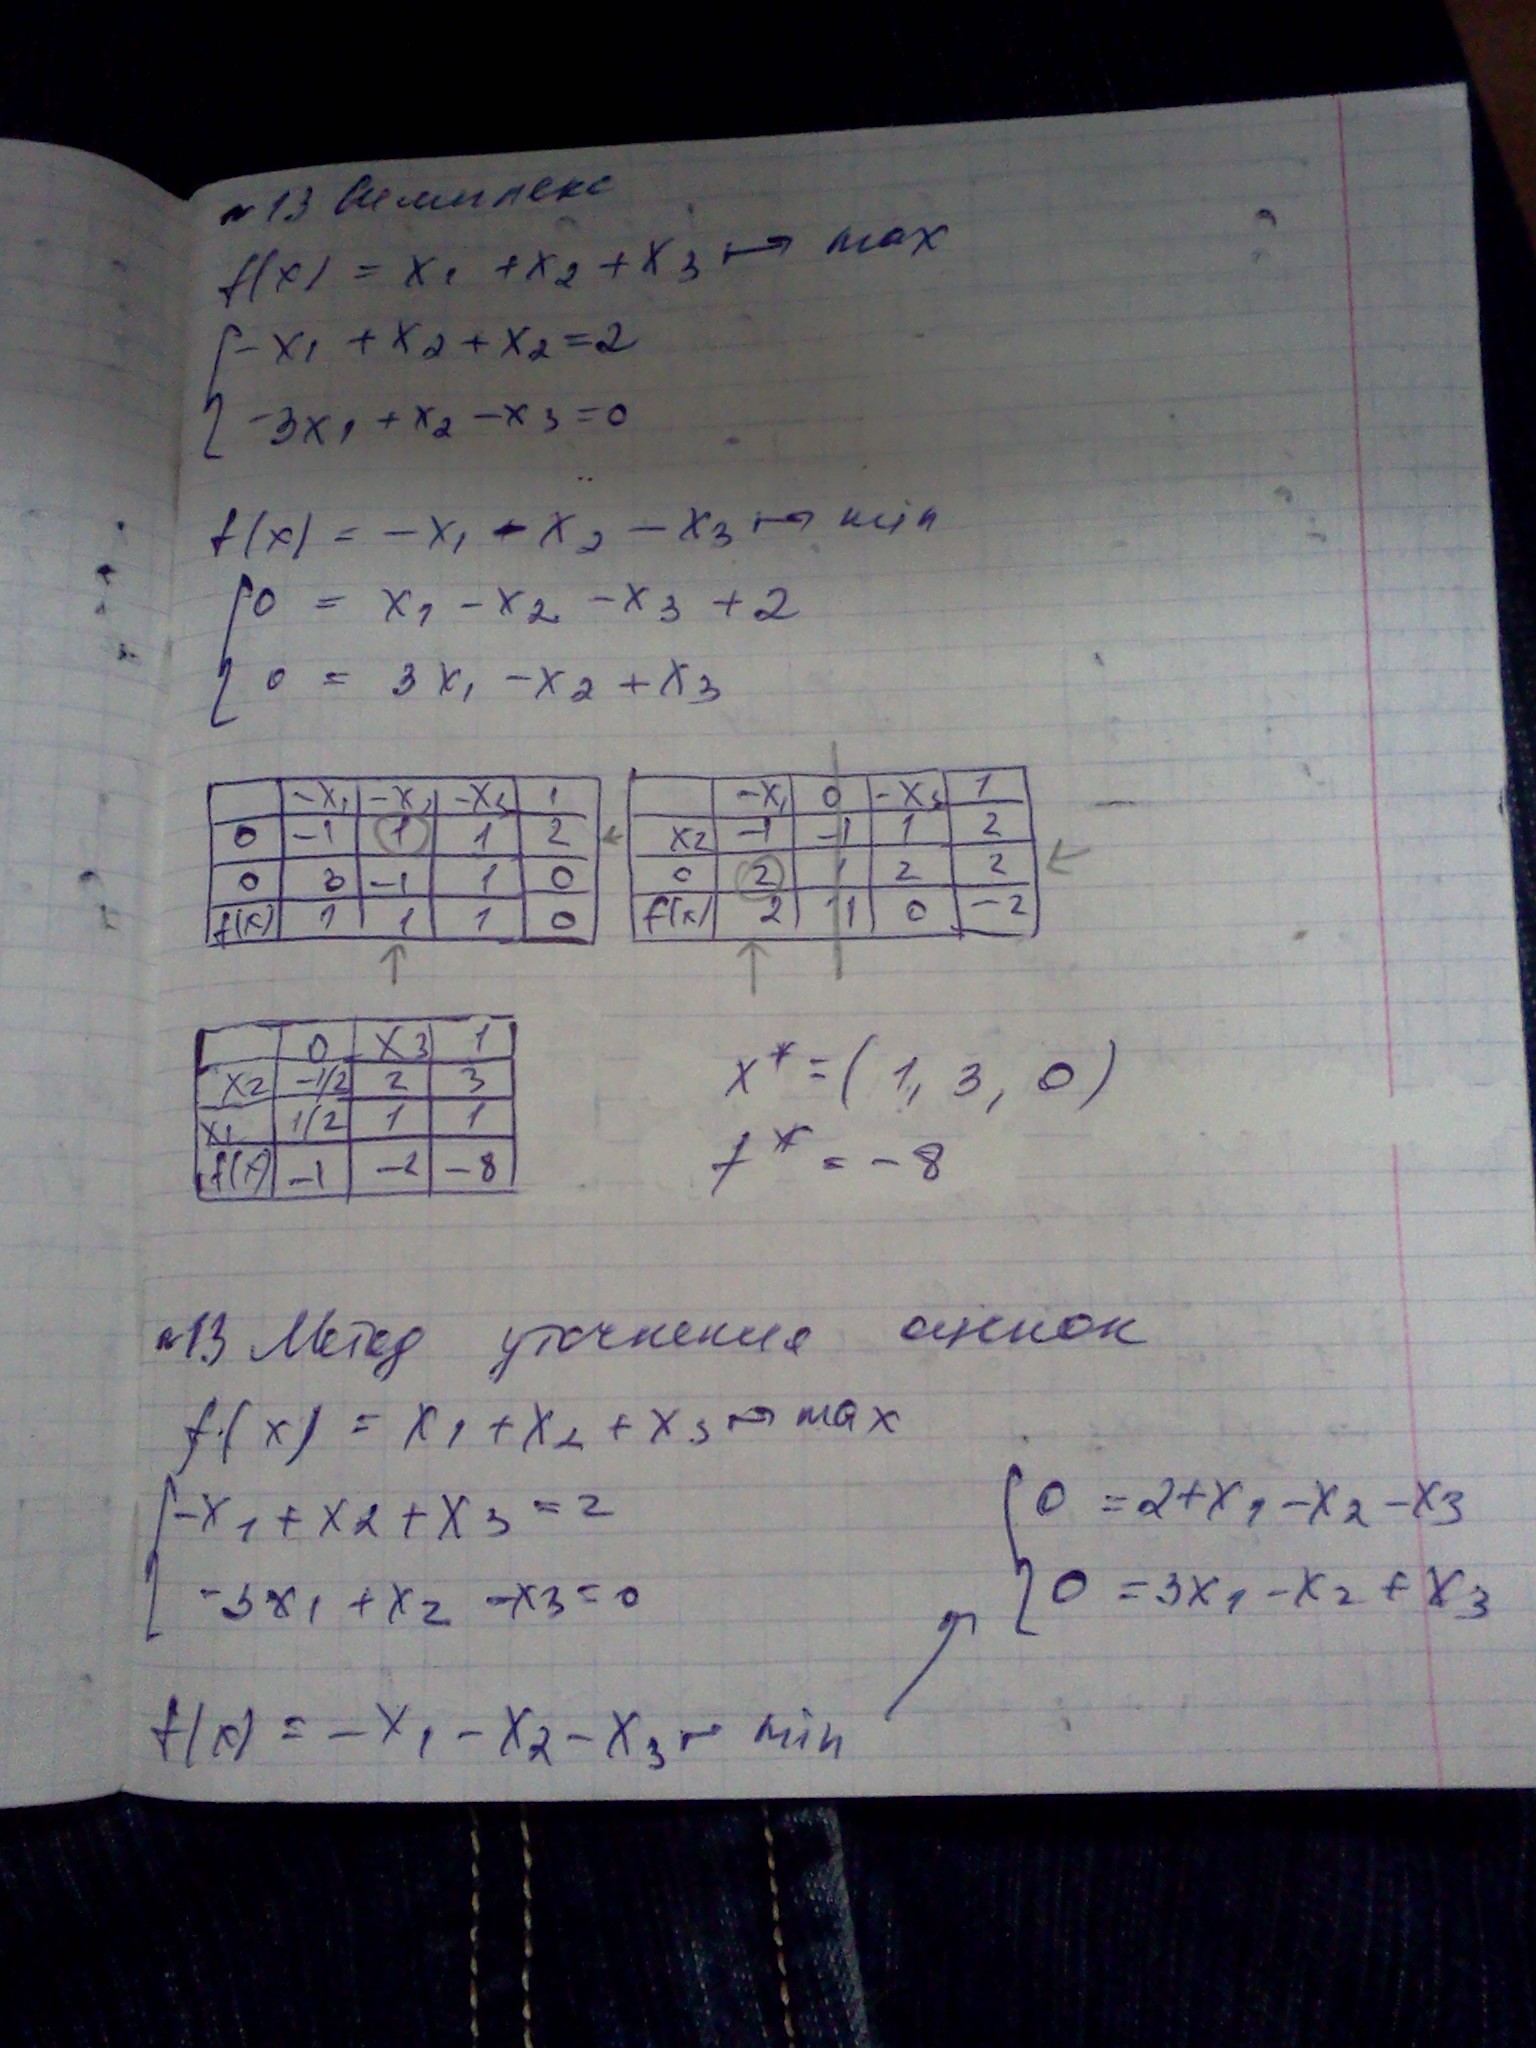 №13 Симплекс
f(x) = x1 + x2 + x3 ↦ max
{ -x1 + x2 + x2 = 2
-3x1 + x2 - x3 = 0
f(x) = -x1 - x2 - x3 ↦ min
{ 0 = x1 - x2 - x3 + 2
0 = 3x1 - x2 + x3
-x1 -x2 -x3 1
0 -1 1 1 2 ←
0 3 -1 1 0
f(x) 1 1 1 0
↑
-x1 0 -x3 1
x2 -1 -1 1 2
0 2 1 2 2 ←
f(x) 2 11 0 -2
↑
0 x3 1
x2 -1/2 2 3
x1 1/2 1 1
f(x) -1 -2 -8
x* = (1, 3, 0)
f* = -8
№13 Метод уточнения оценок
f(x) = x1 + x2 + x3 ↦ max
{ -x1 + x2 + x3 = 2
-3x1 + x2 - x3 = 0
{ 0 = 2 + x1 - x2 - x3
0 = 3x1 - x2 + x3
f(x) = -x1 - x2 - x3 ↦ min